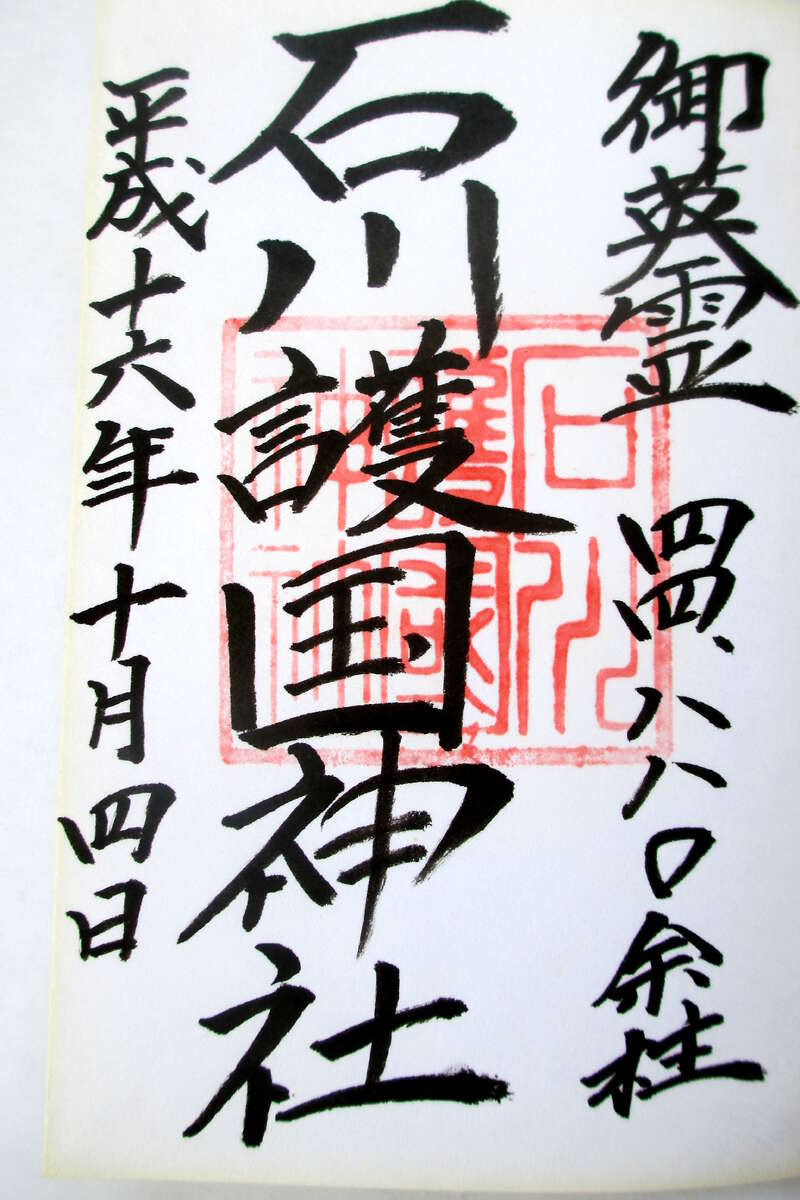 御英霊 四四、八八〇余柱
石川護国神社
平成十六年十月四日
石川護國神社